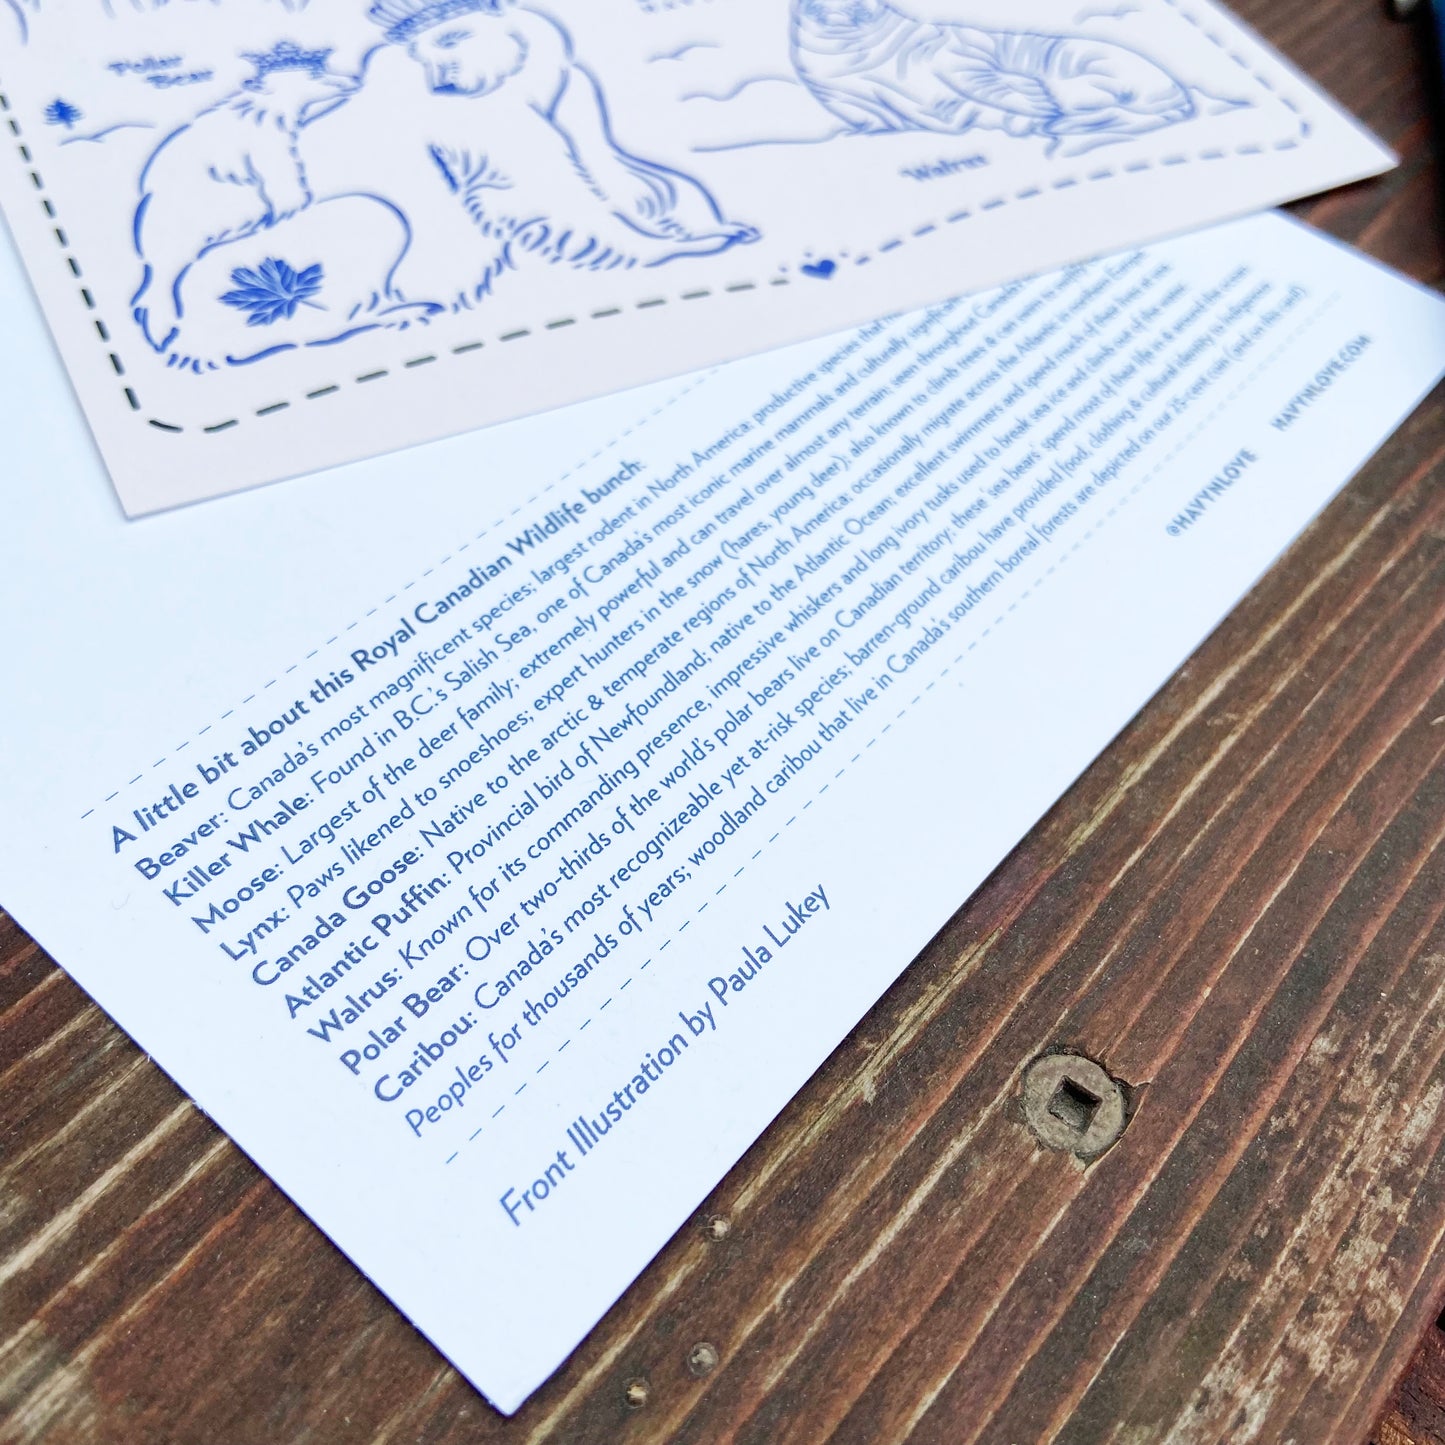 Polar
Bear
Walrus
A little bit about this Royal Canadian Wildlife bunch:
Beaver: Canada's most magnificent species; largest rodent in North America; productive species that
Killer Whale: Found in B.C.'s Salish Sea, one of Canada's most iconic marine mammals and culturally significant
Moose: Largest of the deer family; extremely powerful and can travel over almost any terrain; seen throughout Canada
Lynx: Paws likened to snoeshoes; expert hunters in the snow (hares, young deer), also known to climb trees & can swim to
Canada Goose: Native to the arctic & temperate regions of North America; occasionally migrate across the Atlantic to northern Europe
Atlantic Puffin: Provincial bird of Newfoundland; native to the Atlantic Ocean; excellent swimmers and spend much of their lives at sea
Walrus: Known for its commanding presence, impressive whiskers and long ivory tusks used to break sea ice and climb out of the water
Polar Bear: Over two-thirds of the world's polar bears live on Canadian territory; these 'sea bears' spend most of their life in & around the ocean
Caribou: Canada's most recognizeable yet at-risk species; barren-ground caribou have provided food, clothing & cultural identity to Indigenous
Peoples for thousands of years; woodland caribou that live in Canada's southern boreal forests are depicted on our 25-cent coin (and on this card!)
Front Illustration by Paula Lukey
@HAVYNLOVE HAVYNLOVE.COM